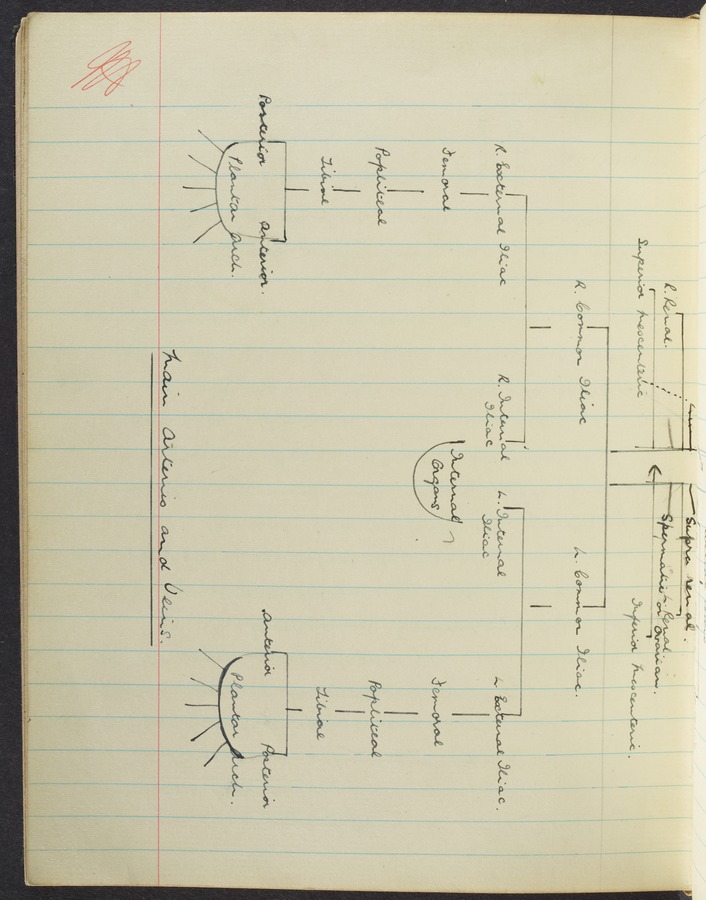 Supra renal.
R. Renal.
L. Renal.
Spermatic or Ovarian.
Superior Mesenteric
Inferior Mesenteric.
R. Common Iliac
L. Common Iliac.
R. External Iliac
R. Internal
Iliac
L. Internal
Iliac
L. External Iliac.
Internal
Organs
Femoral
Femoral
Popliteal
Popliteal
Tibial
Tibial
Posterior
Anterior.
Anterior
Posterior
Plantar Arch.
Plantar Arch.
Main Arteries and Veins.